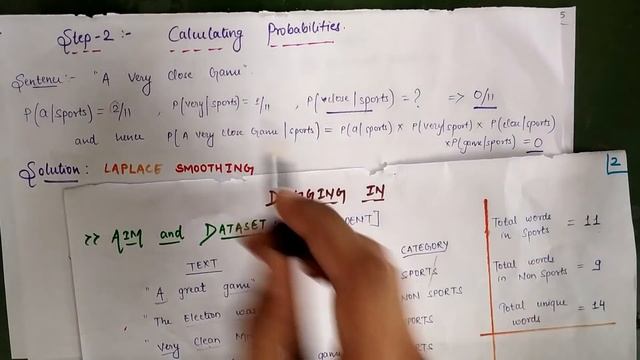 5
Step-2 : Calculating Probabilities.
Sentence:- "A Very Close Game"
P(a|sports) = 2/11 , P(very|sports) = 1/11 , P(close|sports) = ? => 0/11
and hence P(A very close Game|sports) = P(a|sports) × P(very|sport) × P(close|sports)
×P(game|sports) = 0
Solution: LAPLACE SMOOTHING
2
IN
>> AIM and DATASET
TEXT CATEGORY
"A great game" SPORTS
"The Election was NON SPORTS
"Very Clean SPORTS
game SPORTS
Total words in Sports = 11
Total words in Non Sports = 9
Total unique words = 14